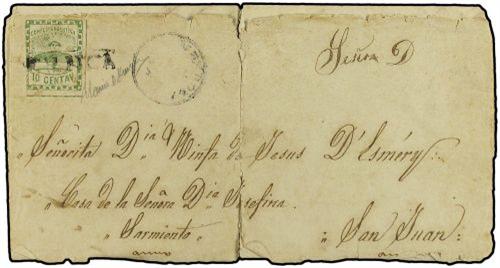 CONFEDON ARGENTINA
10 CENTAV
FRANCA
Señora D
„ Señorita Dia „ Ninfa de Jesus D'Esméry:
„ Casa de la Señora Dia Josefina
„ Sarmiento „
„ San Juan: